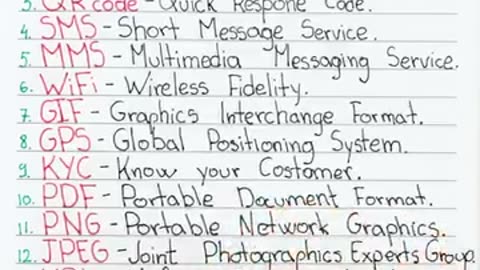 3. QR code - Quick Respone Code.
4. SMS - Short Message Service.
5. MMS - Multimedia Messaging Service.
6. WiFi - Wireless Fidelity.
7. GIF - Graphics Interchange Format.
8. GPS - Global Positioning System.
9. KYC - Know your Costomer.
10. PDF - Portable Document Format.
11. PNG - Portable Network Graphics.
12. JPEG - Joint Photographics Experts Group.